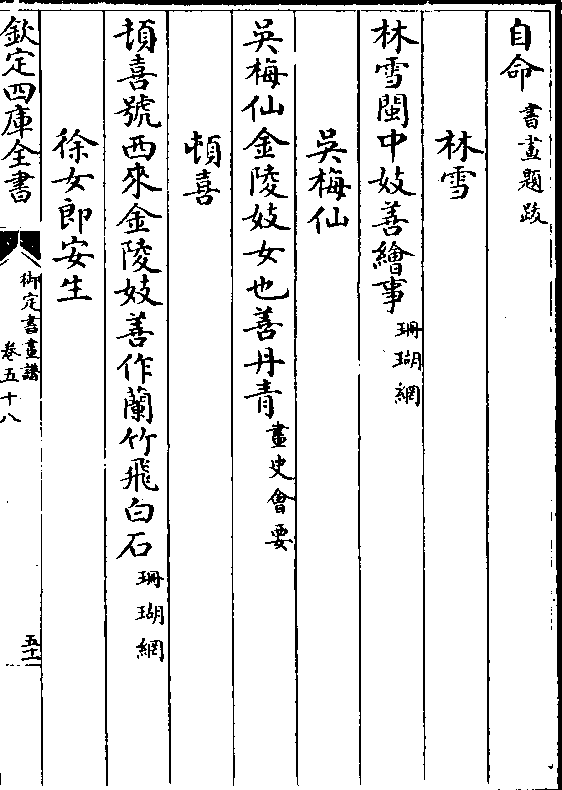 自命書畫題跋
林雪
林雪閩中妓善繪事珊瑚網
吳梅仙
吳梅仙金陵妓女也善丹青畫史會要
頓喜
頓喜號西來金陵妓善作蘭竹飛白石珊瑚網
徐女郎安生
欽定四庫全書
御定書畫譜
卷五十八
五十一